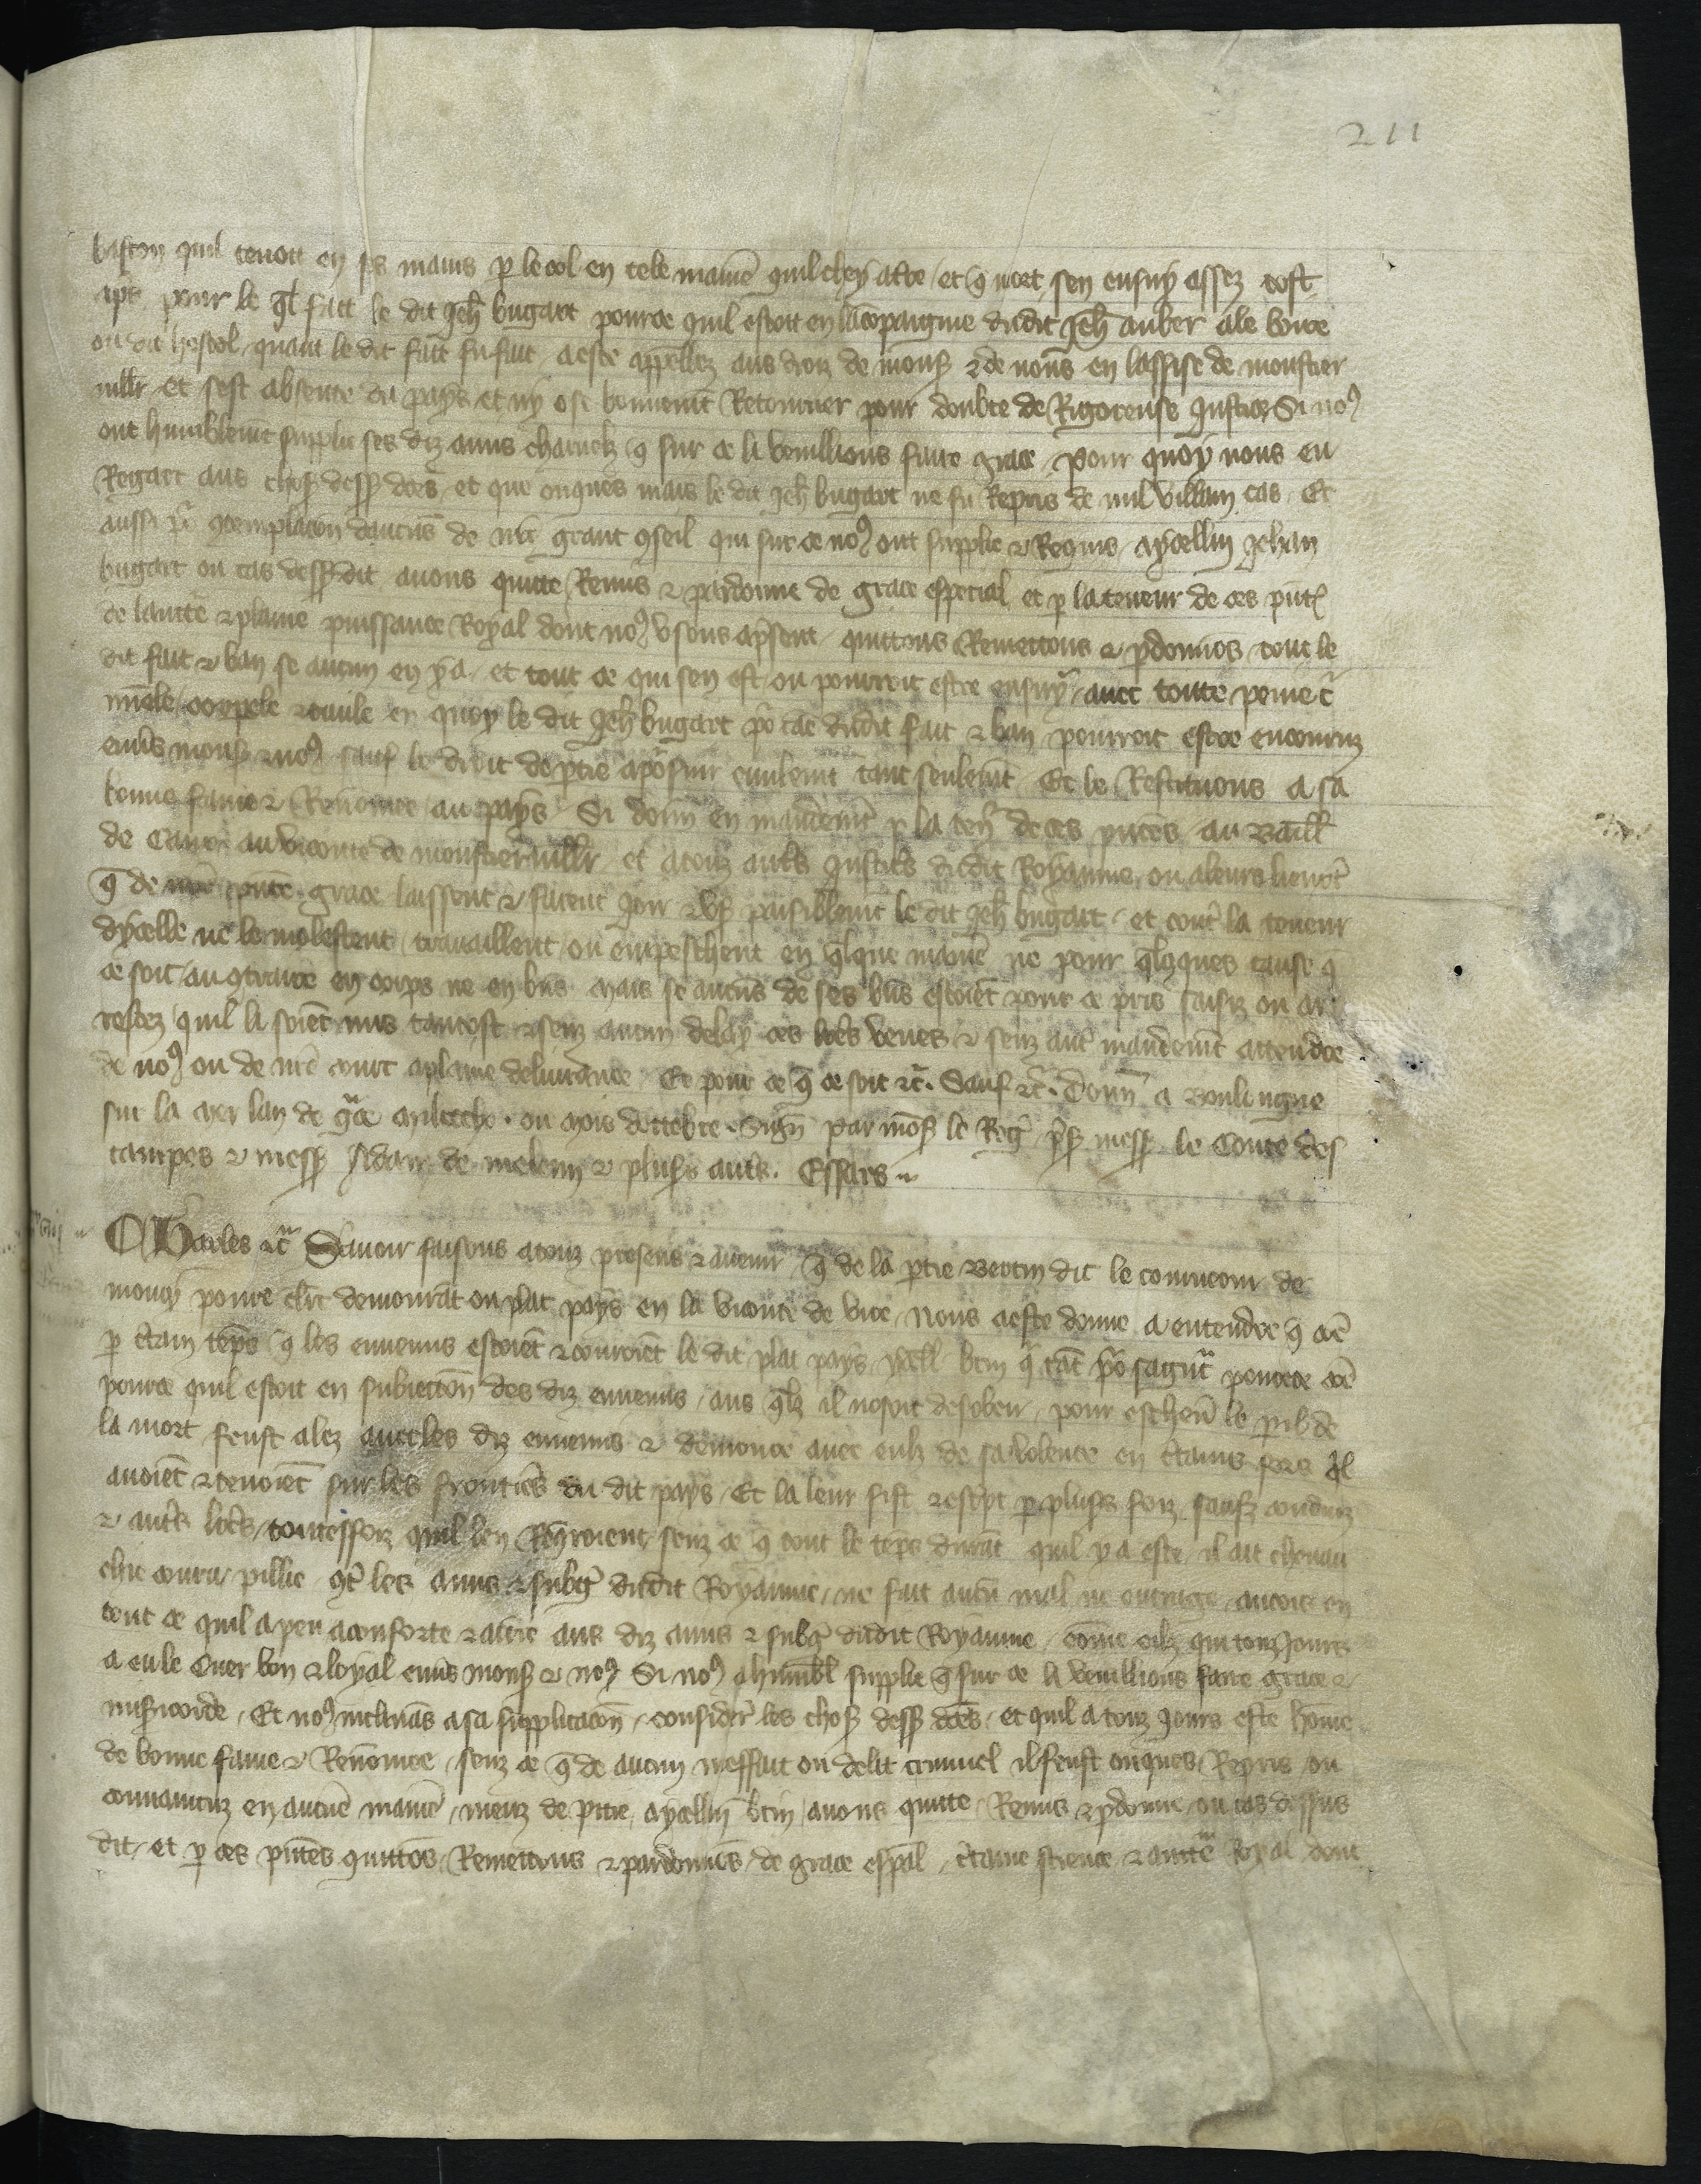 211
baston quil tenoit en ses mains p le col en tele manie quil chey a tre / et q mort sen ensuy assez tost
apres pour le ql fait le dit Jeh bugart pource quil estoit en la compaignie dudit Jeh auber ale boire
ou dit hostel / quant le dit fait fu fait / a este appellez aus droiz de mons & de nous en lassise de moustier
viller et sest absente du pays et ny ose bonnemt Retourner pour doubte de Rigoreuse Justice Si no9
ont humblemt supplie ses diz amis charnelz q sur ce li veuillions faire grace / pour quoy nous eu
Regart aus choses desp dces / et que onques mais le dit Jeh bugart ne fu Repris de nul villain cas / Et
aussi pr 9templacon daucuns de nre grant 9seil qui sur ce no9 ont supplie & Requis / aycellui Jehan
bugart ou cas desp dit avons quitte Remis & pardonne de grace especial et p la teneur de ces pntes
de lautte & plaine puissance Royal dont no9 usons apsent / quittons Remettons & pdonnos tout le
dit fait & ban se aucun en y a / et tout ce qui sen est ou pourroit estre ensuy / avec toute peine cri
minele corpele & civile en quoy le dit Jeh bugart po cause dudit fait & ban pourroit estre encouruz
envs mons & no9 sauf le droit de ptie a psuir civilemt tant seulemt Et le Restituons a sa
bonne fame & Renomee au pays Si donn en mandemt p la ten de ces pntes au Baill
de Caux au viconte de moustierviller et a touz autrs Justiciers dudit Royaume ou a leurs lieuxt
q de nre pnte grace laissent & facent Joir & user paisiblemt le dit Jeh bugart / et contr la teneur
dycelle ne le molestent travaillent ou empeschent en qlque manie ne pour qlxques cause q
ce soit / au 9traire en corps ne en biens mais se aucuns de ses biens estoient pour ce pris saisiz ou ar
restez quil li soient mis tantost & senz aucun delay ces lres veues & senz autr mandemt attendre
de no9 ou de nre court a plaine delivrance Et pour ce q ce soit &c. Sauf &c. Donn a Boulongne
sur la mer lan de grace mil ccclx ou mois dottobre Sign par mons le Reg pns mess le Conte des
tampes & mess Adam de meleun & plus autrs. Essars
CHarles &c Savoir faisons a touz presens & avenir q de la ptie Bertin dit le connteour de
moucy povre clerc demourat ou plat pays en la viconte de vire nous a este donne a entendre q cõe
p ctain temps q les ennemis estoient & couroient le dit plat pays ycell btin q tat po sagut pource cõe
pource quil estoit en subiection des diz ennemis / aus qlz il nosoit desobeir / pour eschever le pil de
la mort feust alez avec les diz ennemis & demoure avec eulz de sa volente en ctains fors ql
avoient & tenoient sur les frontiers du dit pays / Et la leur fist & escript p pluss foiz saufz conduiz
& autrs lrres / toutesfoiz quil len Requroient senz ce q tout le temps durat quil y a este il ait chevau
chie couru / pillie 9tre les amis & subgez dudit Royaume / ne fait aucun mal ne outrage ancois en
tout ce quil a peu a conforte & aidie aus diz amis & subgez dudit Royaume / come cellz qui touzjours
a eu le cuer bon & loyal envs mons & no9 Si no9 a humbl supplie q sur ce li veuillions faire grace &
misricorde / Et no9 inclinas a sa supplicacon / considere les choses desp dces / et quil a touz jours este home
de bonne fame & Renomee / senz ce q de aucun meffait ou delit criminel il feust onques Repris ou
convaincuz en aucune manie / meuz de pitie aycellui btin / avons quitte Remis & pdonne / ou cas dessus
dit / et p ces pntes quittos Remettons & pardonnos de grace espal / ctaine science & autte Royal dont